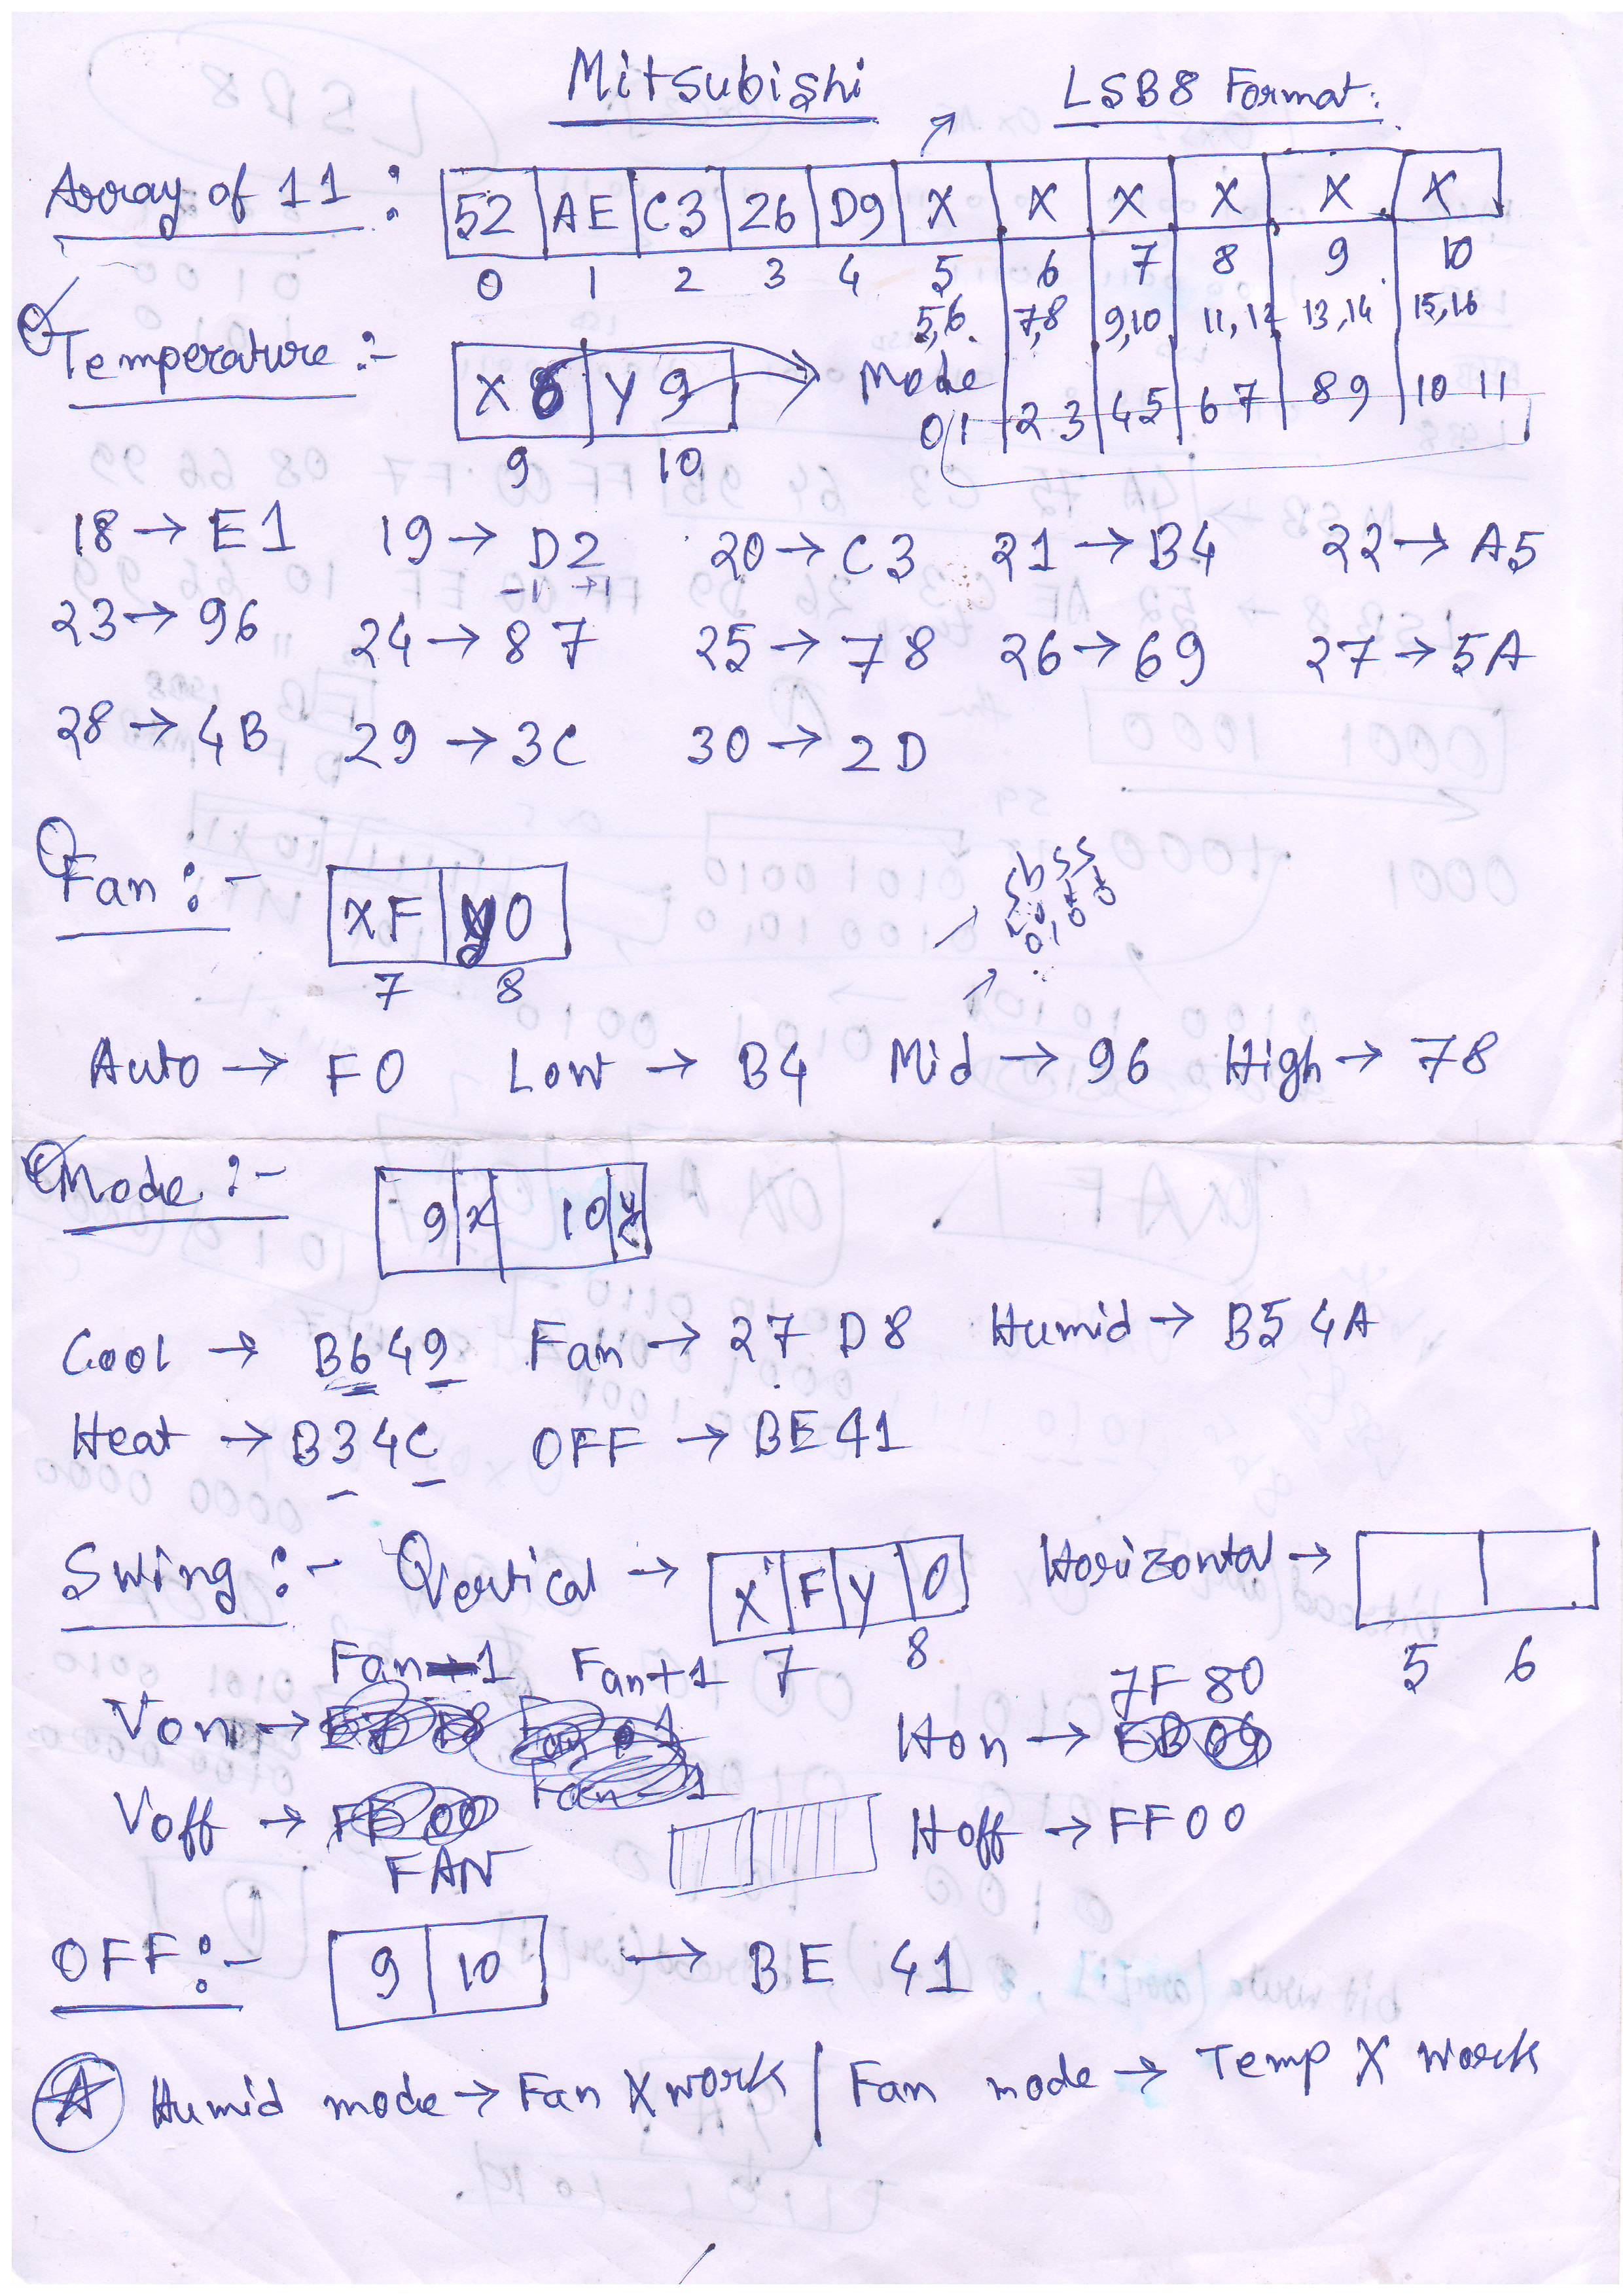 Mitsubishi LSB8 Format:
Array of 11 : 52 AE C3 26 D9 X X X X X X
0 1 2 3 4 5 6 7 8 9 10
5,6. 7,8 9,10 11,12 13,14 15,16
Temperature :- X 6 Y 9 → Mode
0 1 2 3 4 5 6 7 8 9 10 11
9 10
18 → E1 19 → D2 20 → C3 21 → B4 22 → A5
-1 +1
23 → 96 24 → 87 25 → 78 26 → 69 27 → 5A
28 → 4B 29 → 3C 30 → 2D
Fan :- XF y0
7 8
Auto → F0 Low → B4 Mid → 96 High → 78
Mode :- 9 x 10 y
Cool → B649 Fan → 27 D8 Humid → B54A
Heat → B34C OFF → BE41
Swing :- Vertical → X F Y 0 Horizontal →
7 8 5 6
Fan-1 Fan+1 7F 80
Von → Hon →
Voff → Hoff → FF00
FAN
OFF :- 9 10 → BE 41
Humid mode → Fan X work | Fan mode → Temp X work